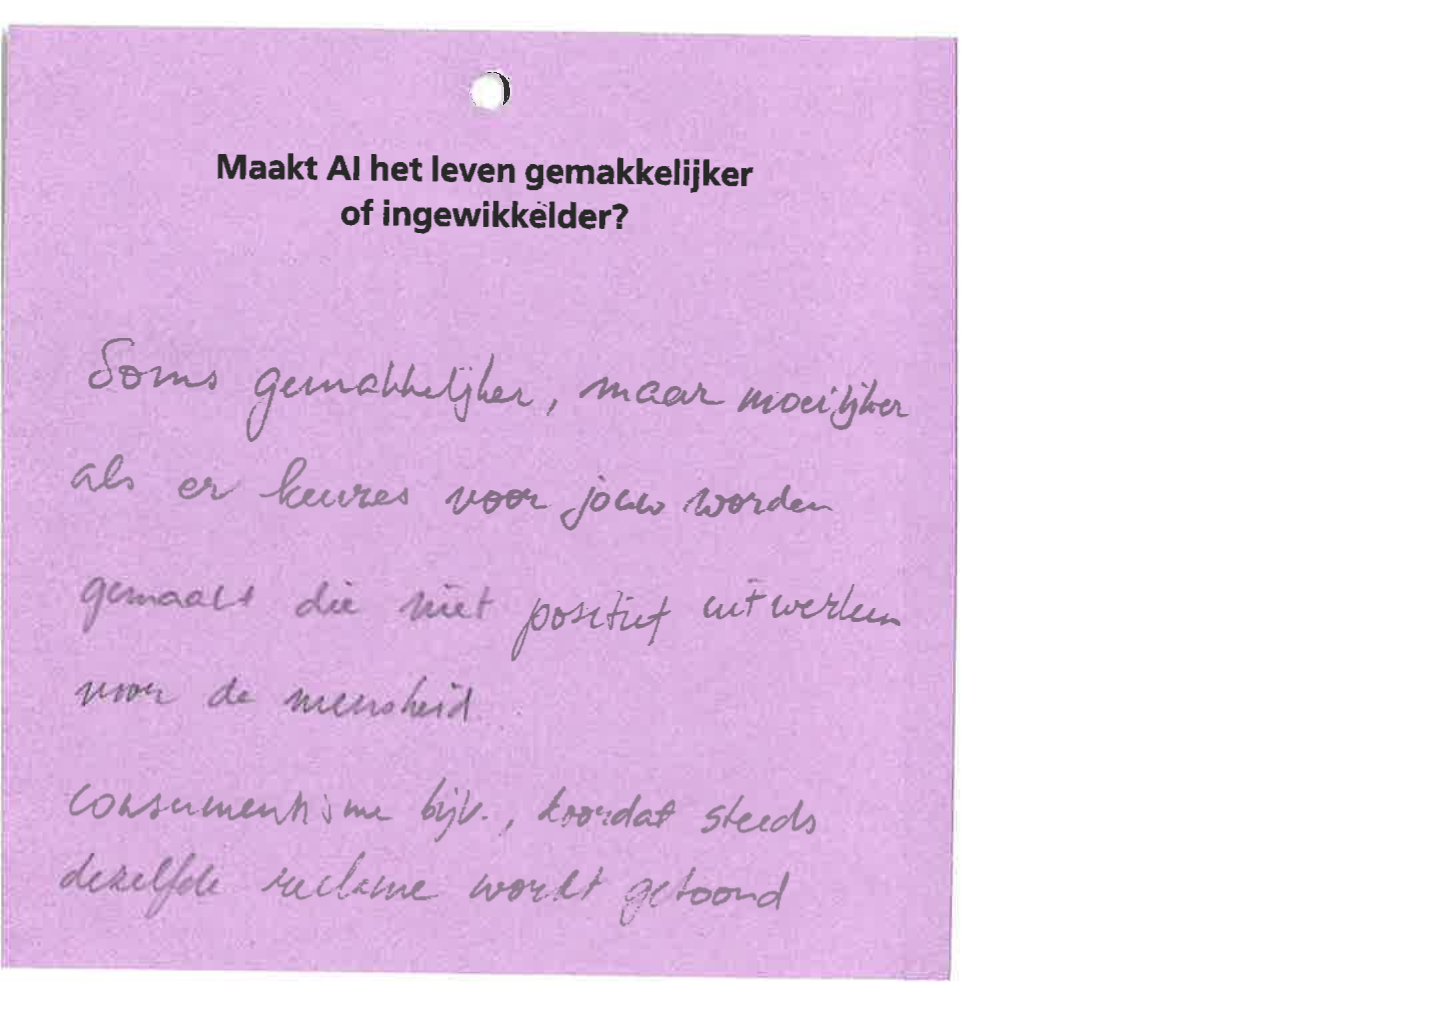 Maakt AI het leven gemakkelijker
of ingewikkelder?
Soms gemakkelijker, maar moeilijker
als er keuzes voor jouw worden
gemaakt die niet positief uitwerken
voor de mensheid.
consumentisme bijv., doordat steeds
dezelfde reclame wordt getoond